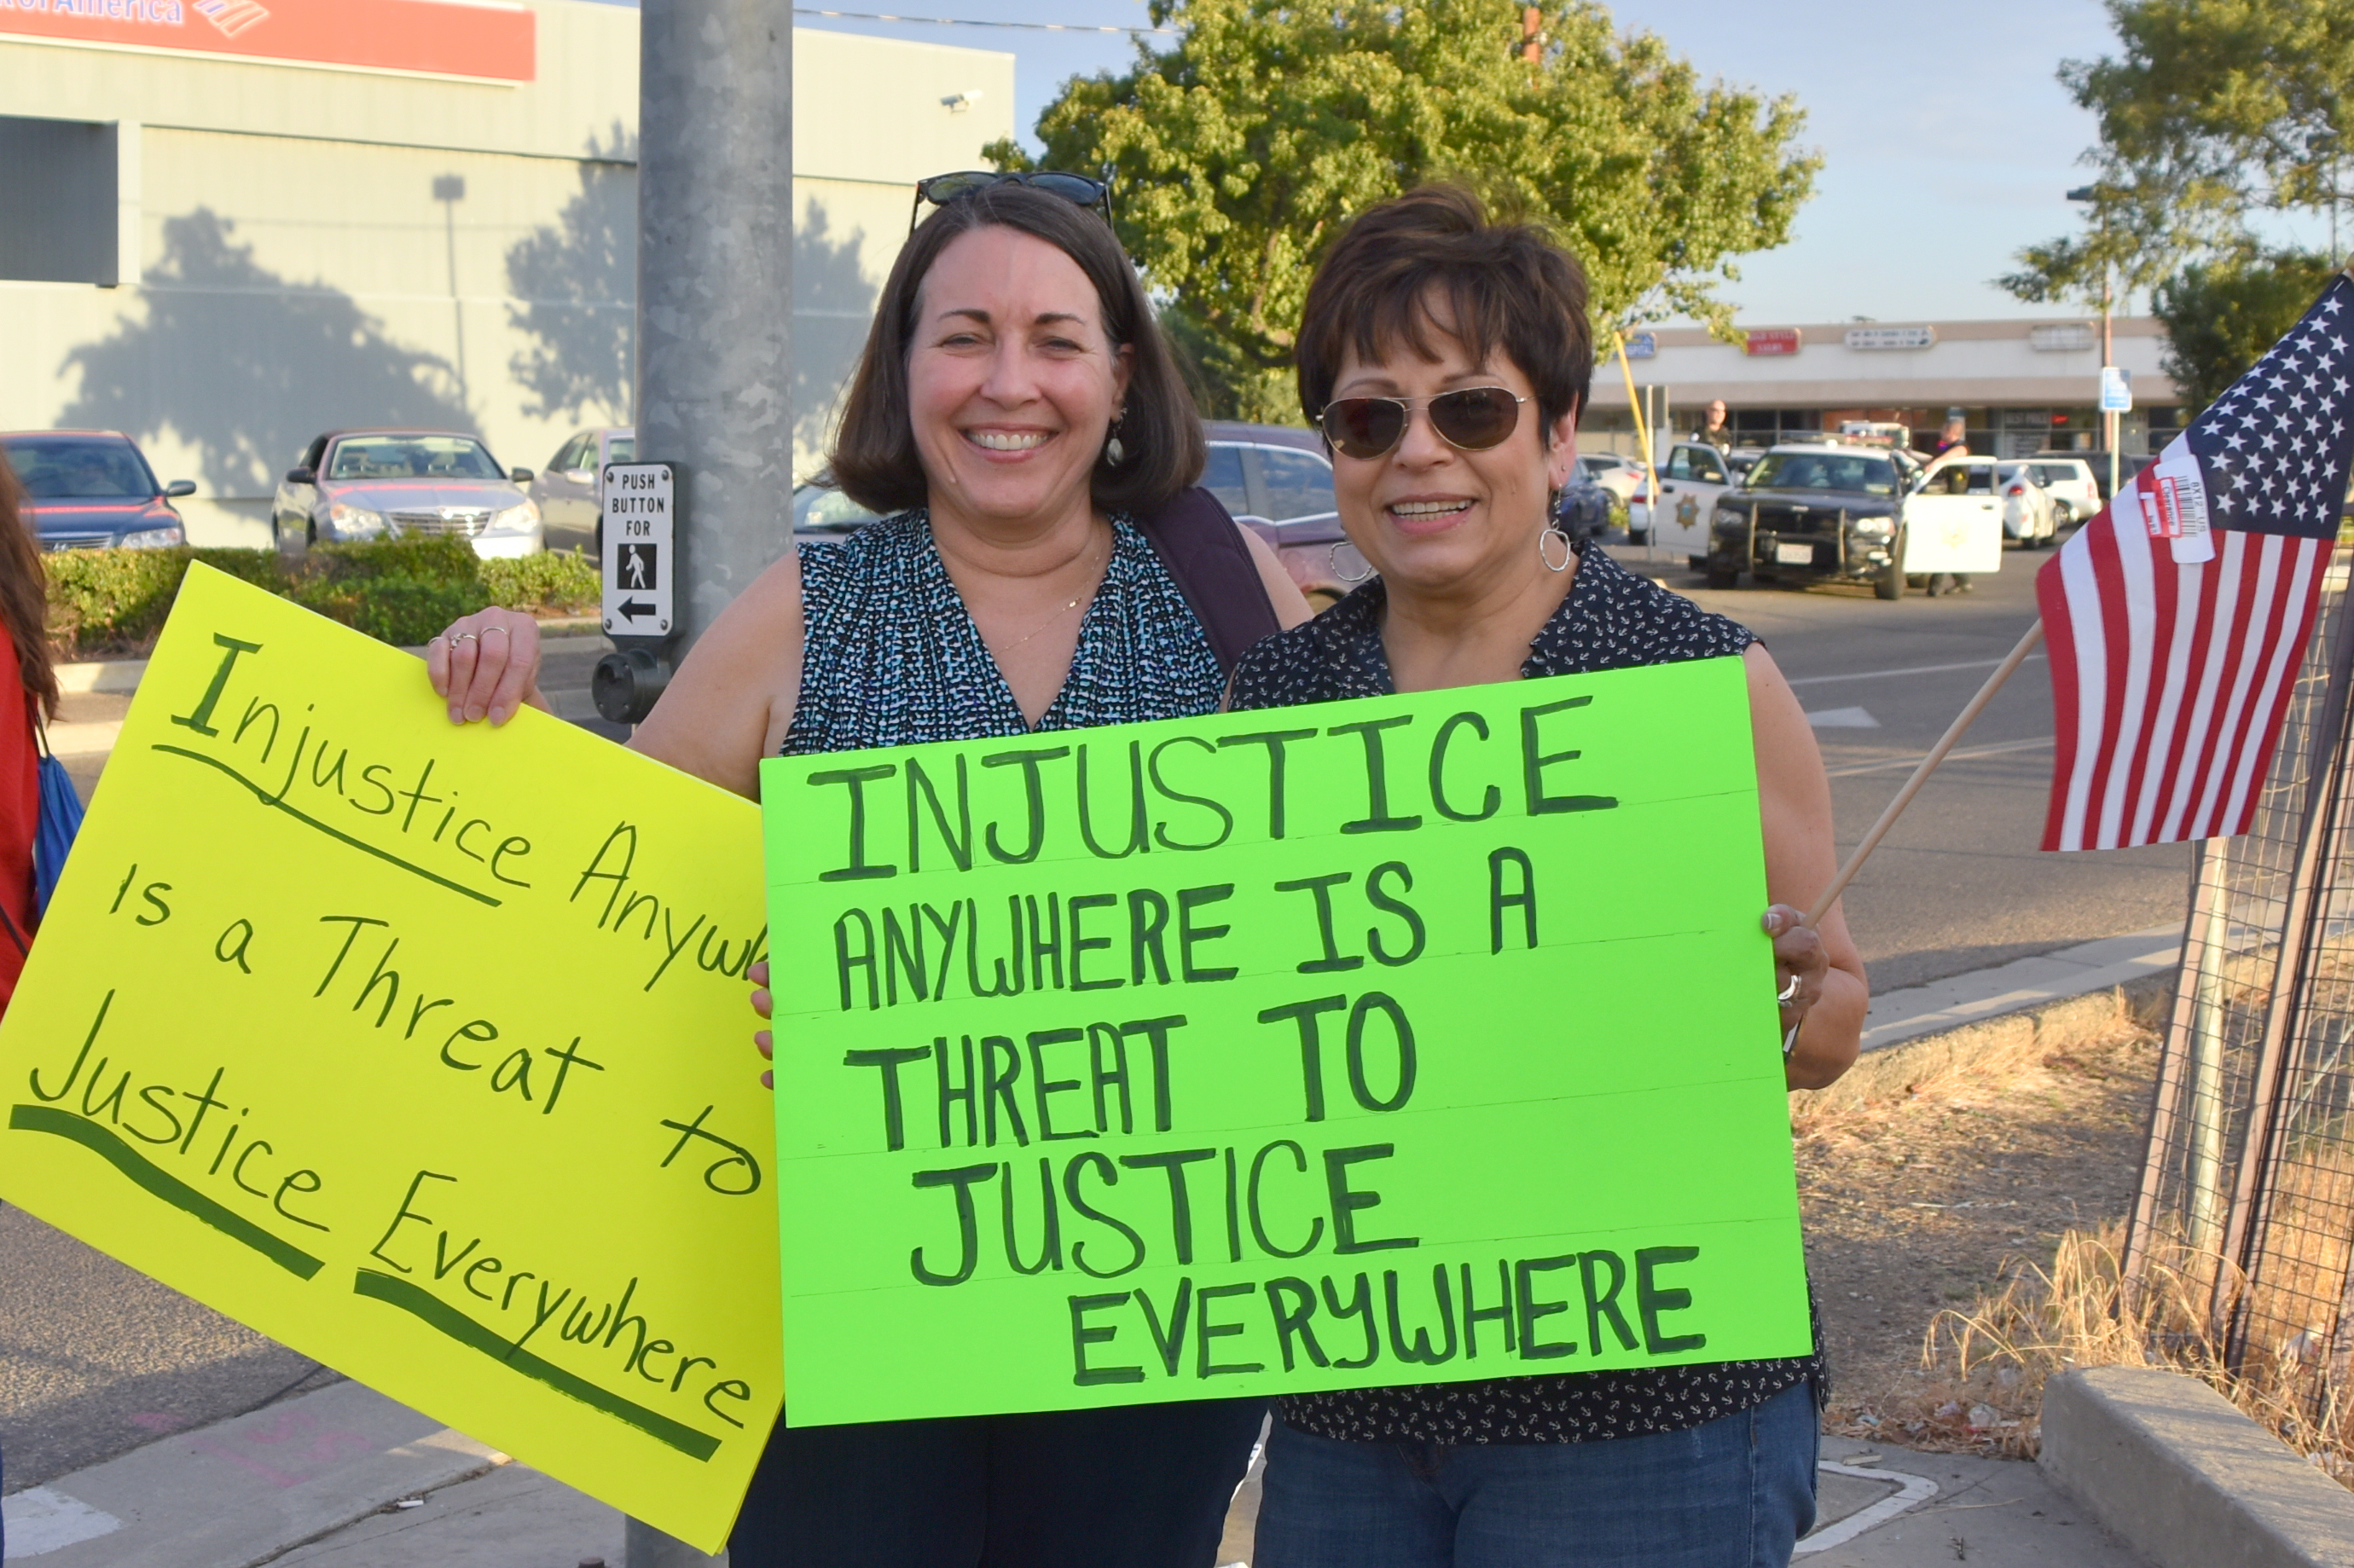 of America
PUSH
BUTTON
FOR
Injustice
is a Threat to
Justice Everywhere
INJUSTICE
ANYWHERE IS A
THREAT TO
JUSTICE
EVERYWHERE